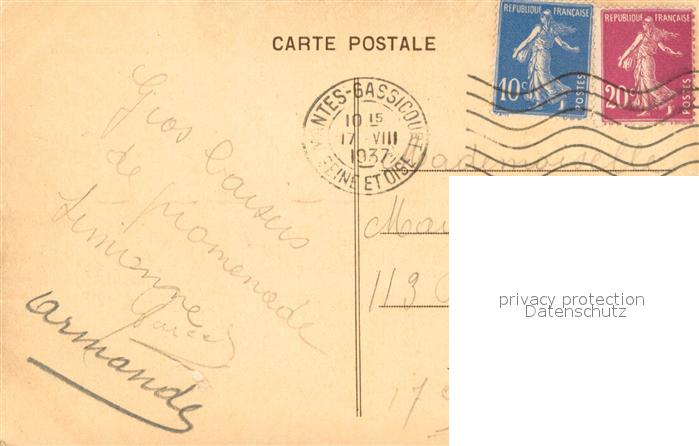 CARTE POSTALE
REPUBLIQUE FRANÇAISE
10c
POSTES
REPUBLIQUE FRANÇAISE
20c
POSTES
MANTES-GASSICOURT
10 15
17 VIII
1937
SEINE ET OISE
Gros baisers
de promenade
Simonne
Armande
Mademoiselle
113
17
privacy protection
Datenschutz